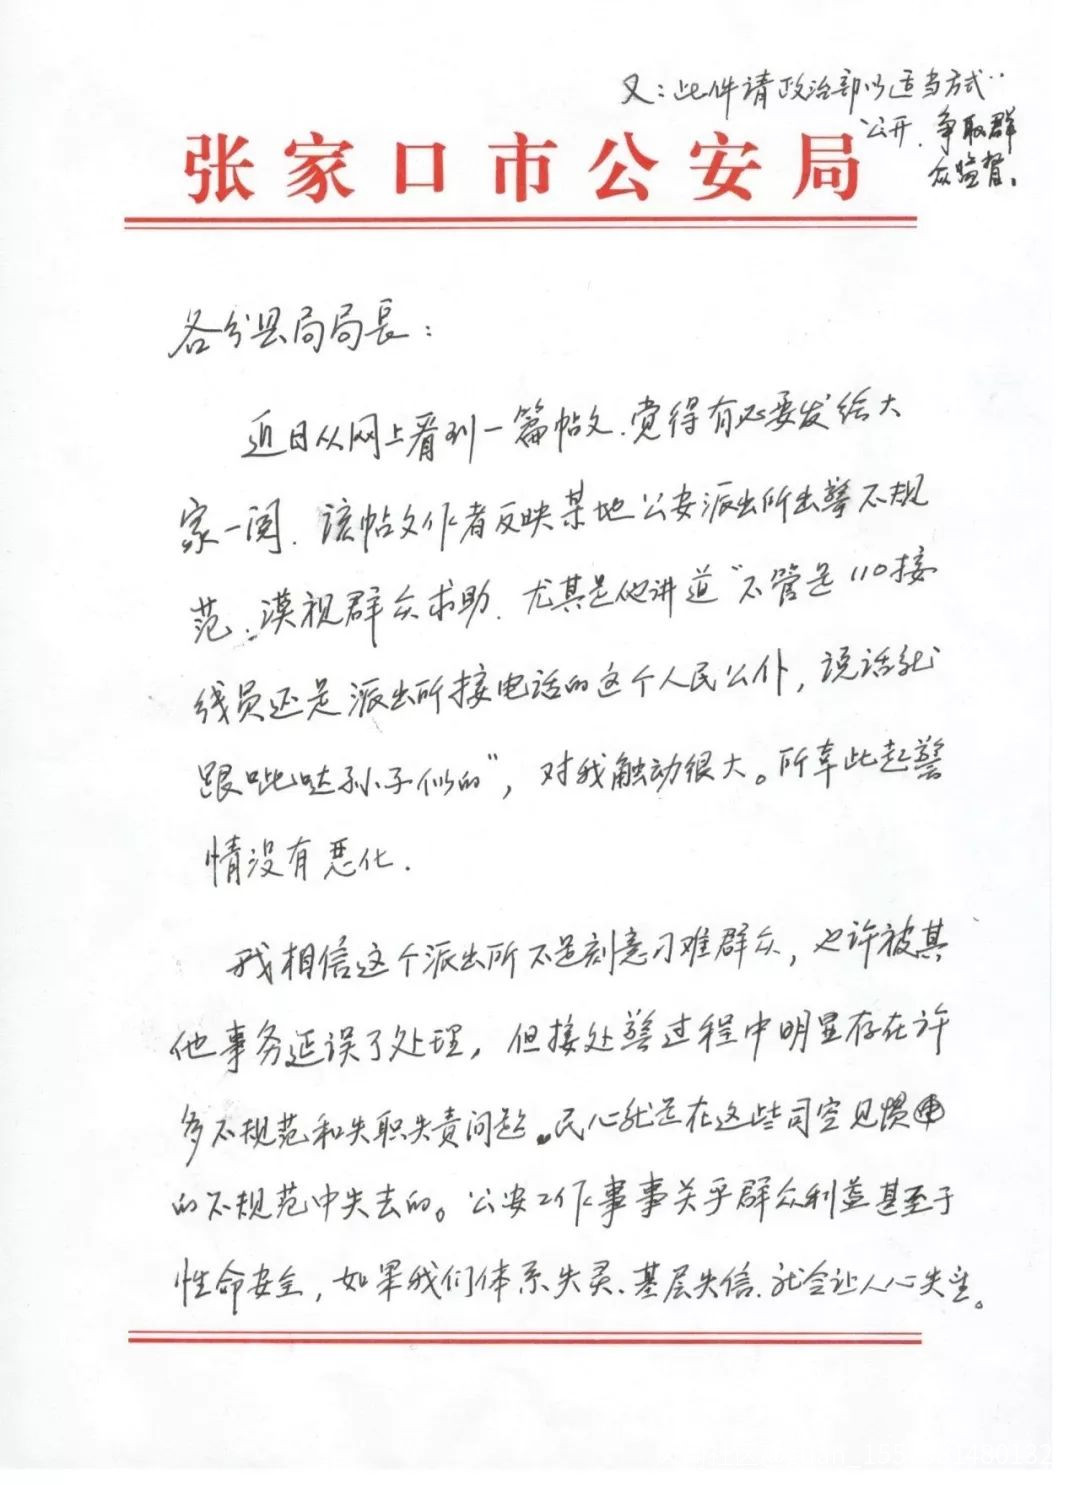 又：此件请政治部以适当方式
公开，争取群
众监督。
张家口市公安局
各分县局局长：
近日从网上看到一篇帖文，觉得有必要发给大
家一阅。该帖文作者反映某地公安派出所出警不规
范、漠视群众求助，尤其是他讲道“不管是110接
线员还是派出所接电话的这个人民公仆，说话就
跟呲哒孙子似的”，对我触动很大。所幸此起警
情没有恶化。
我相信这个派出所不是刻意刁难群众，也许被其
他事务延误了处理，但接处警过程中明显存在许
多不规范和失职失责问题。民心就是在这些司空见惯
的不规范中失去的。公安工作事事关乎群众利益甚至于
性命安全，如果我们体系失灵、基层失信，就会让人心失望。